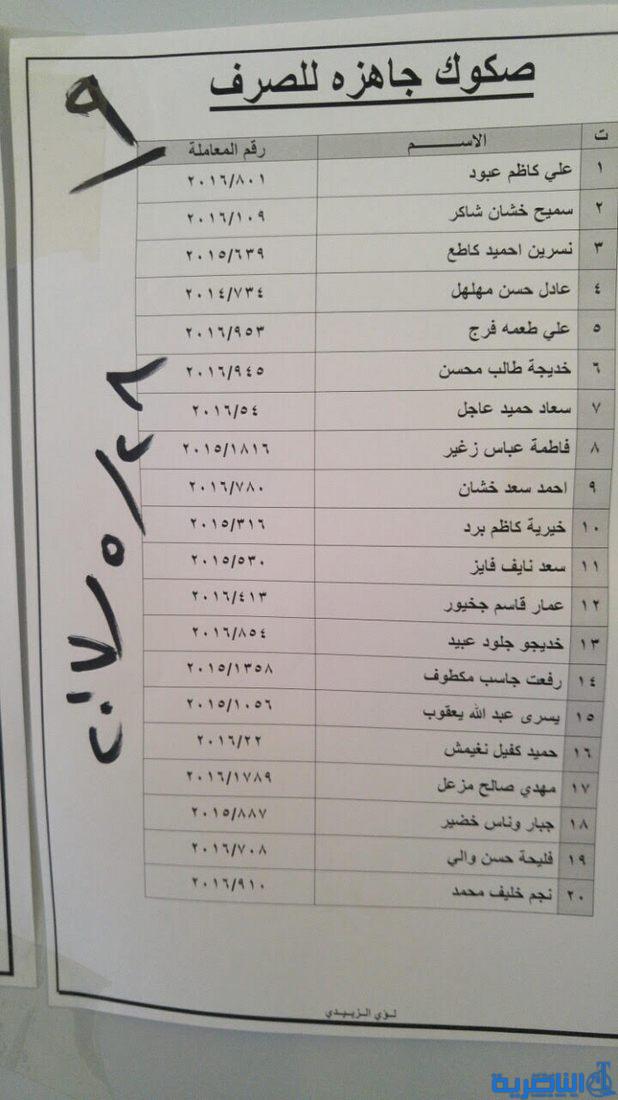 صكوك جاهزه للصرف
٩
ت الاســــــم رقم المعاملة
١ علي كاظم عبود ٢٠١٦/٨٠١
٢ سميح خشان شاكر ٢٠١٦/١٠٩
٣ نسرين احميد كاطع ٢٠١٥/٦٣٩
٤ عادل حسن مهلهل ٢٠١٤/٧٣٤
٥ علي طعمه فرج ٢٠١٦/٩٥٣
٦ خديجة طالب محسن ٢٠١٦/٩٤٥
٧ سعاد حميد عاجل ٢٠١٦/٥٤
٨ فاطمة عباس زغير ٢٠١٥/١٨١٦
٩ احمد سعد خشان ٢٠١٦/٧٨٠
١٠ خيرية كاظم برد ٢٠١٥/٣١٦
١١ سعد نايف فايز ٢٠١٥/٥٣٠
١٢ عمار قاسم جخيور ٢٠١٦/٤١٣
١٣ خديجو جلود عبيد ٢٠١٦/٨٥٤
١٤ رفعت جاسب مكطوف ٢٠١٥/١٣٥٨
١٥ يسرى عبد الله يعقوب ٢٠١٥/١٠٥٦
١٦ حميد كفيل نغيمش ٢٠١٦/٢٢
١٧ مهدي صالح مزعل ٢٠١٦/١٧٨٩
١٨ جبار وناس خضير ٢٠١٥/٨٨٧
١٩ فليحة حسن والي ٢٠١٦/٧٠٨
٢٠ نجم خليف محمد ٢٠١٦/٩١٠
لـؤي الـزبـيـدي
الناصرية